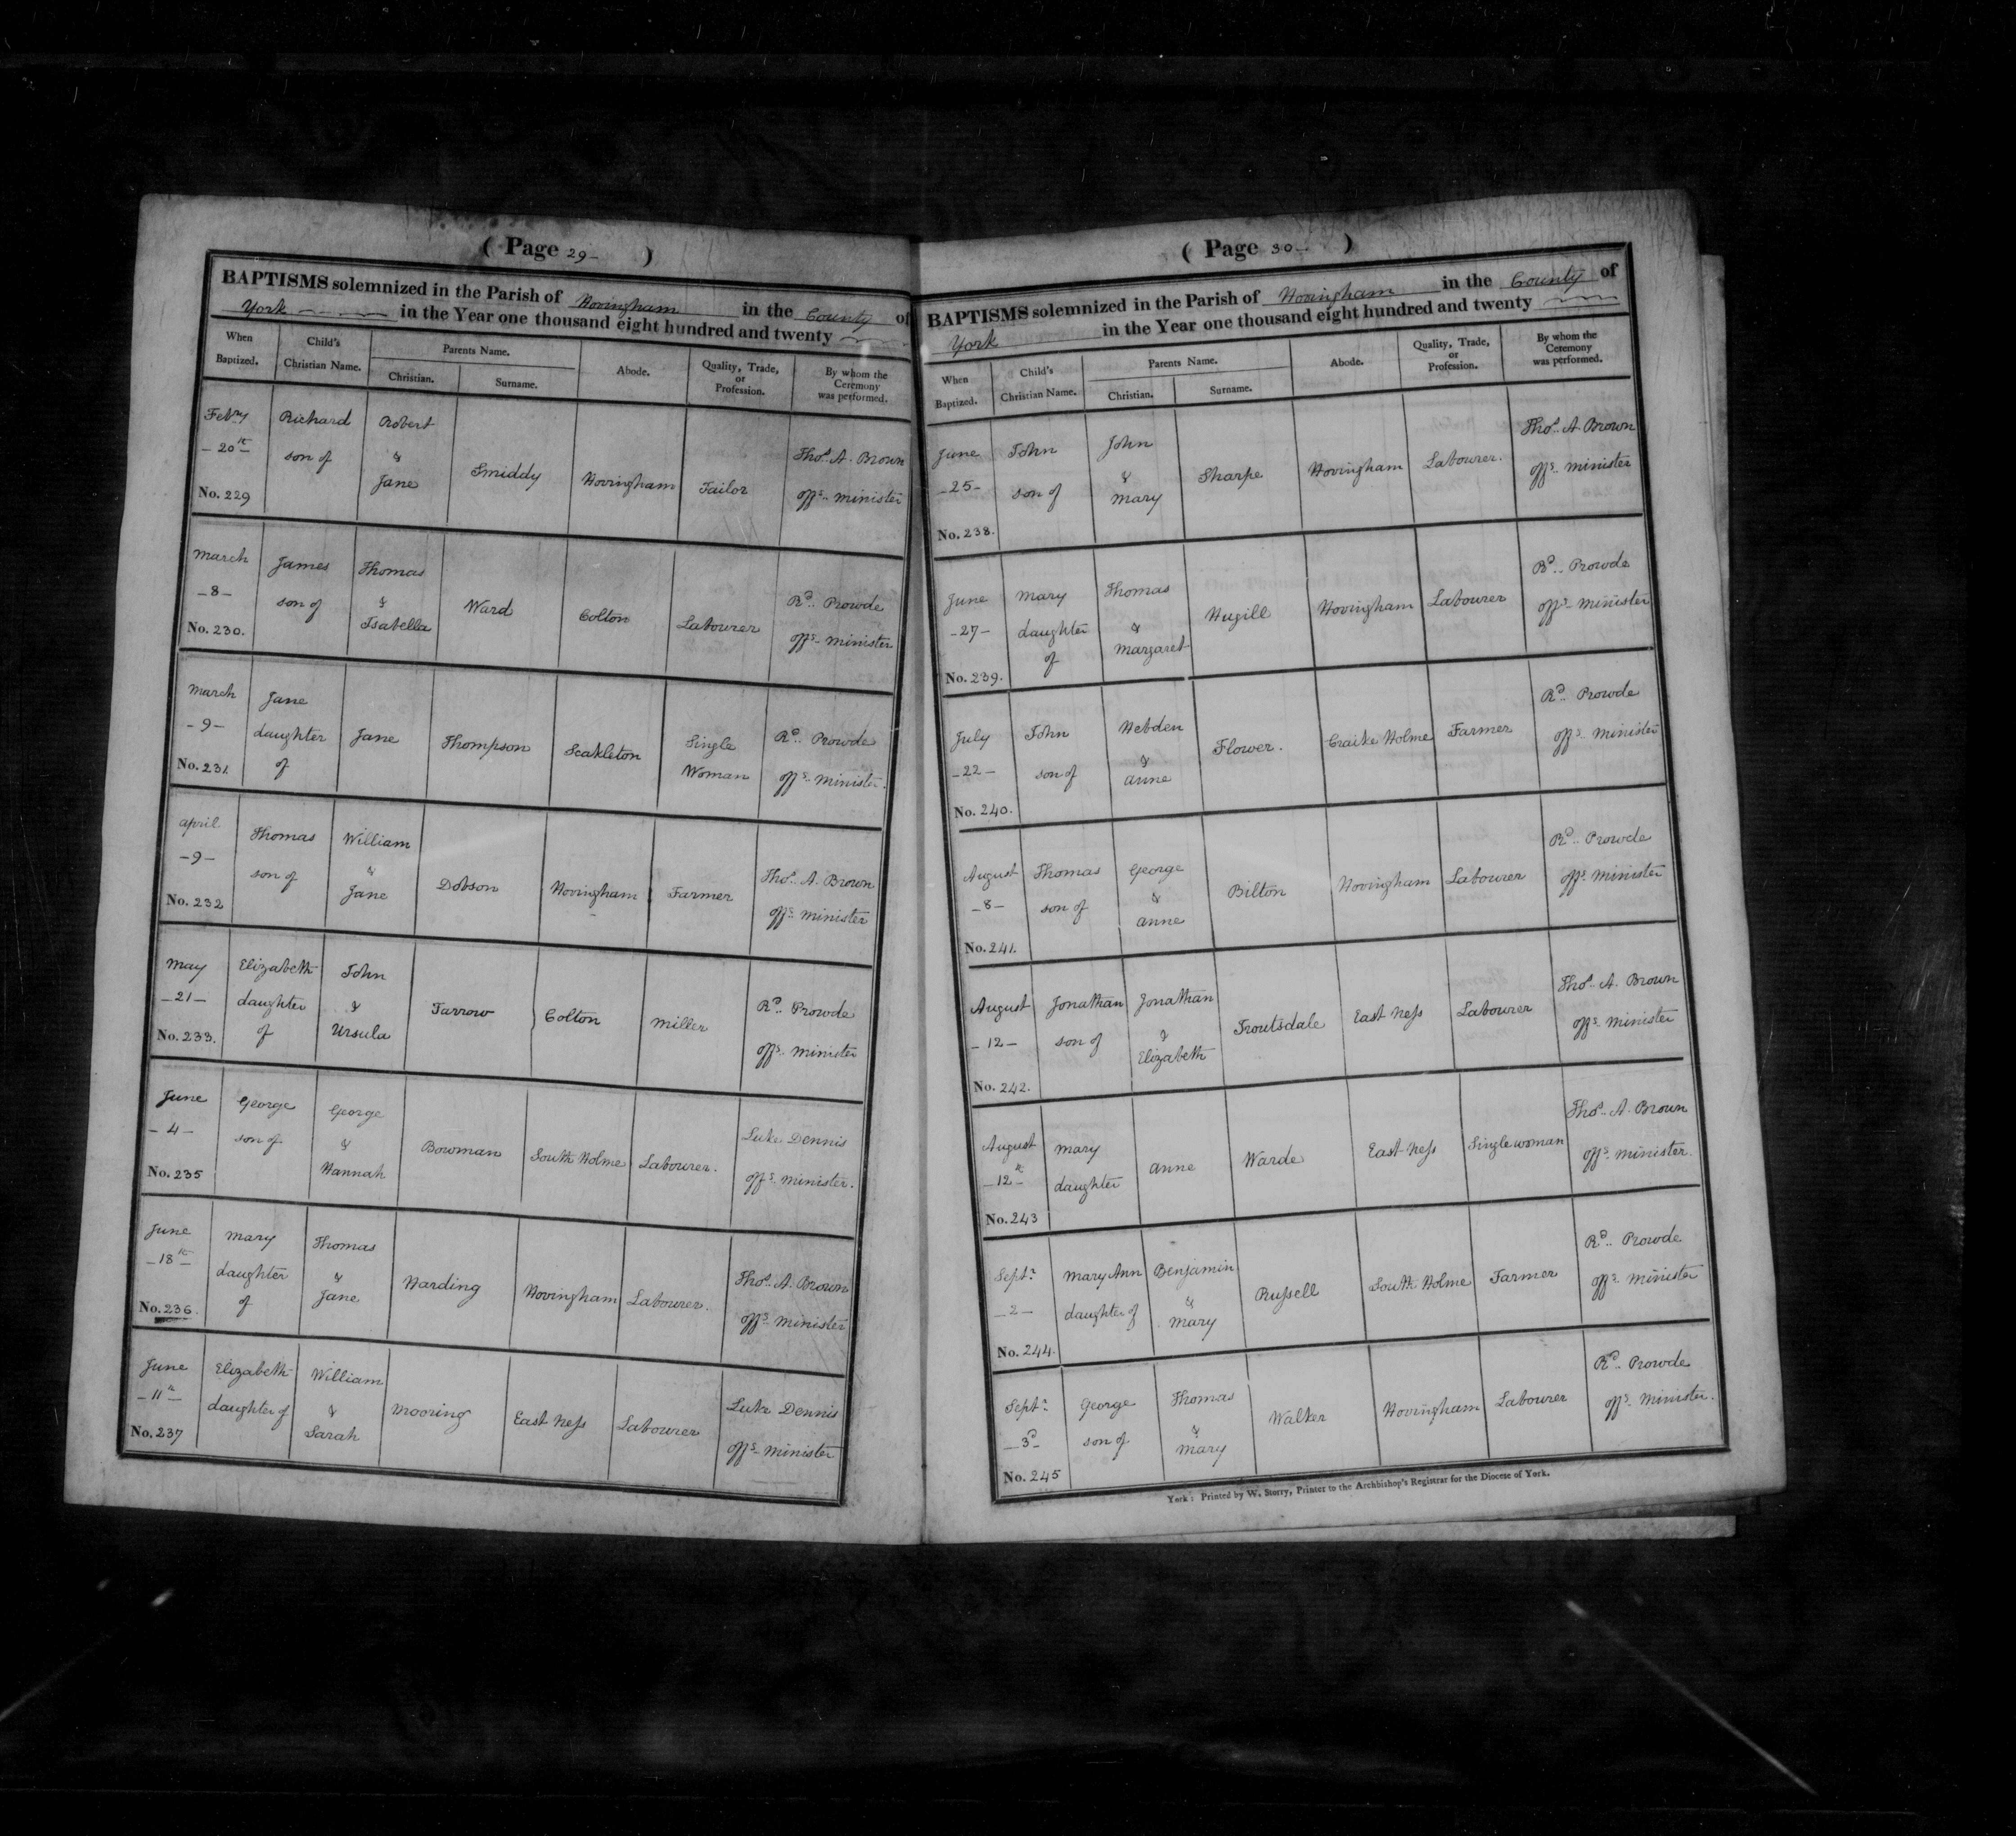 ( Page 29- )
BAPTISMS solemnized in the Parish of Hovingham in the County of
York in the Year one thousand eight hundred and twenty
When Baptized. Child's Christian Name. Parents Name. Christian. Surname. Abode. Quality, Trade, or Profession. By whom the Ceremony was performed.
Febry Richard Robert
-20th- son of & Smiddy Hovingham Tailor Thos. A. Brown
No. 229 Jane offg. minister
March James Thomas
-8- son of & Ward Colton Labourer Rd. Prowde
No. 230. Isabella offg. minister
March Jane
-9- daughter Jane Thompson Scakleton Single Rd. Prowde
No. 231. of Woman offg. minister.
april Thomas William
-9- son of & Dobson Hovingham Farmer Thos. A. Brown
No. 232 Jane offg. minister
May Elizabeth John
-21- daughter & Tarrow Colton miller Rd. Prowde
No. 233. of Ursula offg. minister
June George George
-4- son of & Bowman South Holme Labourer. Luke Dennis
No. 235 Hannah offg. minister.
June Mary Thomas
-18th- daughter & Harding Hovingham Labourer. Thos. A. Brown
No. 236. of Jane offg. minister
June Elizabeth William
-11th- daughter of & Mooring East Ness Labourer Luke Dennis
No. 237 Sarah offg. minister
( Page 30- )
BAPTISMS solemnized in the Parish of Hovingham in the County of
York in the Year one thousand eight hundred and twenty
When Baptized. Child's Christian Name. Parents Name. Christian. Surname. Abode. Quality, Trade, or Profession. By whom the Ceremony was performed.
June John John
-25- son of & Sharpe Hovingham Labourer. Thos. A. Brown
No. 238. Mary offg. minister
June Mary Thomas
-27- daughter & Hugill Hovingham Labourer Rd. Prowde
No. 239. of Margaret offg. minister
July John Hebden
-22- son of & Flower. Craike Holme Farmer Rd. Prowde
No. 240. anne offg. minister
August Thomas George
-8- son of & Bilton Hovingham Labourer Rd. Prowde
No. 241. anne offg. minister
August Jonathan Jonathan
-12- son of & Troutsdale East Ness Labourer Thos. A. Brown
No. 242. Elizabeth offg. minister
August Mary
-12th- daughter anne Warde East Ness Single woman Thos. A. Brown
No. 243 offg. minister.
Septr. Mary Ann Benjamin
-2- daughter of & Russell South Holme Farmer Rd. Prowde
No. 244. Mary offg. minister
Septr. George Thomas
-3d- son of & Walker Hovingham Labourer Rd. Prowde
No. 245 Mary offg. minister.
York: Printed by W. Storry, Printer to the Archbishop's Registrar for the Diocese of York.